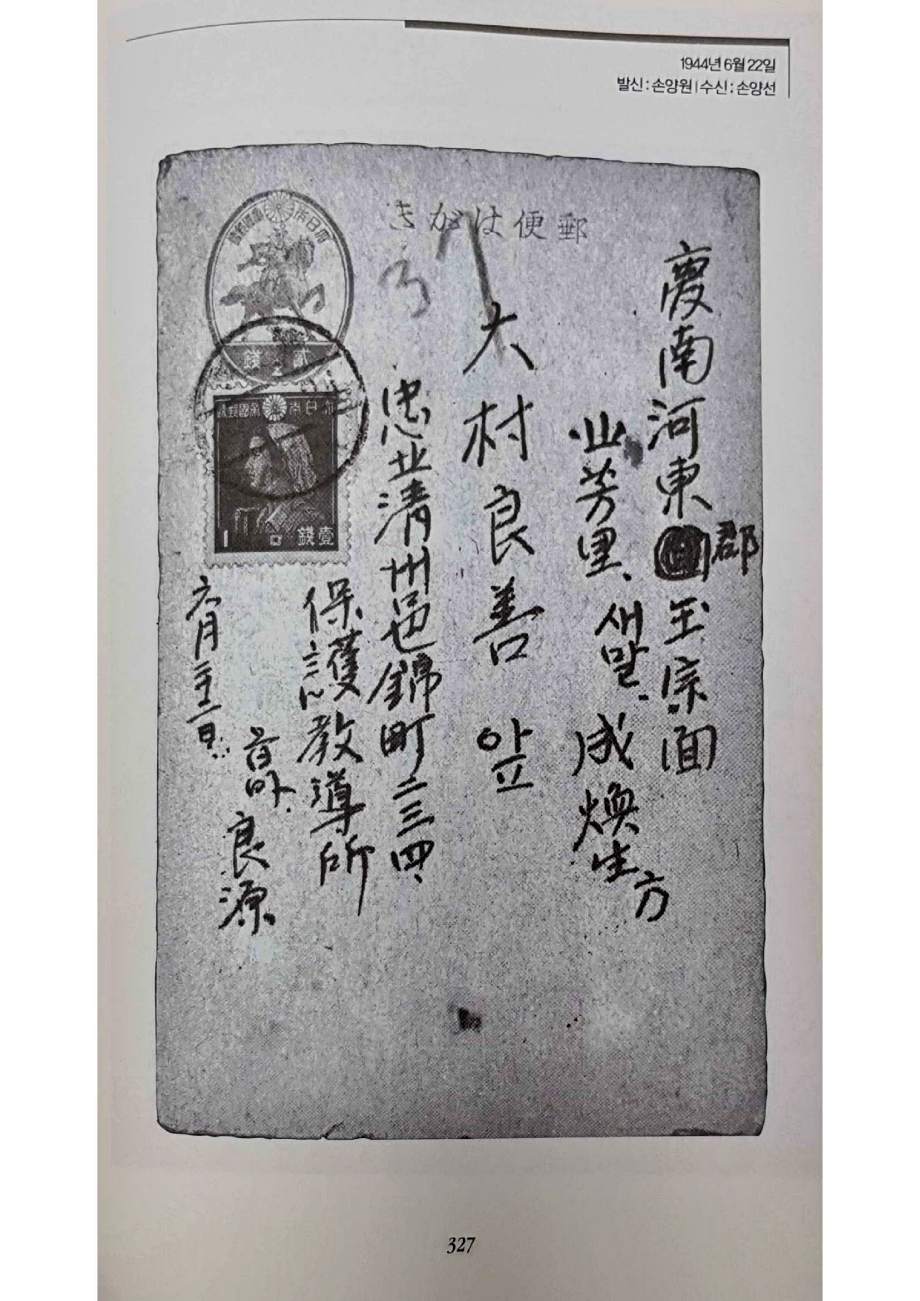 1944년 6월 22일
발신 : 손양원 | 수신 : 손양선
郵便はがき
慶南河東郡玉宗面
北芳里、새말、成煥生方
大村良善 앞
忠北清州邑錦町二三四、
保護教導所
良源
六月二十二日
大日本帝國郵便
貳錢
大日本帝國郵便
壹錢
327